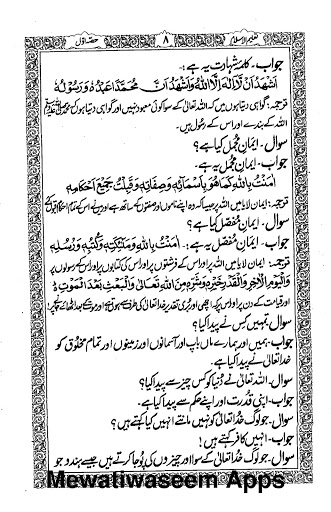 تعلیم الاسلام ۸ حصہ اول
جواب۔ کلمہ شہادت یہ ہے:۔
اَشْهَدُ اَنْ لَّآ اِلٰهَ اِلَّا اللّٰهُ وَاَشْهَدُ اَنَّ مُحَمَّدًا عَبْدُهٗ وَرَسُوْلُهٗ
ترجمہ: گواہی دیتا ہوں میں کہ اللہ تعالیٰ کے سوا کوئی معبود نہیں اور گواہی دیتا ہوں کہ محمد ﷺ
اللہ کے بندے اور اس کے رسول ہیں۔
سوال۔ ایمان مُجمل کیا ہے؟
جواب۔ ایمان مُجمل یہ ہے۔
اٰمَنْتُ بِاللّٰهِ كَمَا هُوَ بِاَسْمَآئِهٖ وَصِفَاتِهٖ وَقَبِلْتُ جَمِيْعَ اَحْكَامِهٖ
ترجمہ: ایمان لایا میں اللہ پر جیسا کہ وہ اپنے ناموں اور صفتوں کے ساتھ ہے اور میں نے اس کے تمام احکام قبول کیے
سوال۔ ایمان مُفصل کیا ہے؟
جواب۔ ایمان مُفصل یہ ہے:۔ اٰمَنْتُ بِاللّٰهِ وَمَلٰٓئِكَتِهٖ وَكُتُبِهٖ وَرُسُلِهٖ
ترجمہ: ایمان لایا میں اللہ پر اور اس کے فرشتوں پر اور اس کی کتابوں پر اور اس کے رسولوں پر
وَالْيَوْمِ الْاٰخِرِ وَالْقَدْرِ خَيْرِهٖ وَشَرِّهٖ مِنَ اللّٰهِ تَعَالٰى وَالْبَعْثِ بَعْدَ الْمَوْتِ
اور قیامت کے دن پر اور اس پر کہ اچھی اور بُری تقدیر خدا تعالیٰ کی طرف سے ہوتی ہے اور موت کے بعد اٹھائے جانے پر
سوال۔ تمہیں کس نے پیدا کیا؟
جواب۔ ہمیں اور ہمارے ماں باپ اور آسمانوں اور زمینوں اور تمام مخلوق کو
خدا تعالیٰ نے پیدا کیا ہے۔
سوال۔ اللہ تعالیٰ نے دُنیا کو کس چیز سے پیدا کیا؟
جواب۔ اپنی قُدرت اور اپنے حکم سے پیدا کیا ہے۔
سوال۔ جو لوگ خدا تعالیٰ کو نہیں مانتے انہیں کیا کہتے ہیں؟
جواب۔ انہیں کافر کہتے ہیں!
سوال۔ جو لوگ خدا تعالیٰ کے سوا اور چیزوں کی پُوجا کرتے ہیں جیسے ہندو جو
Mewatiwaseem Apps